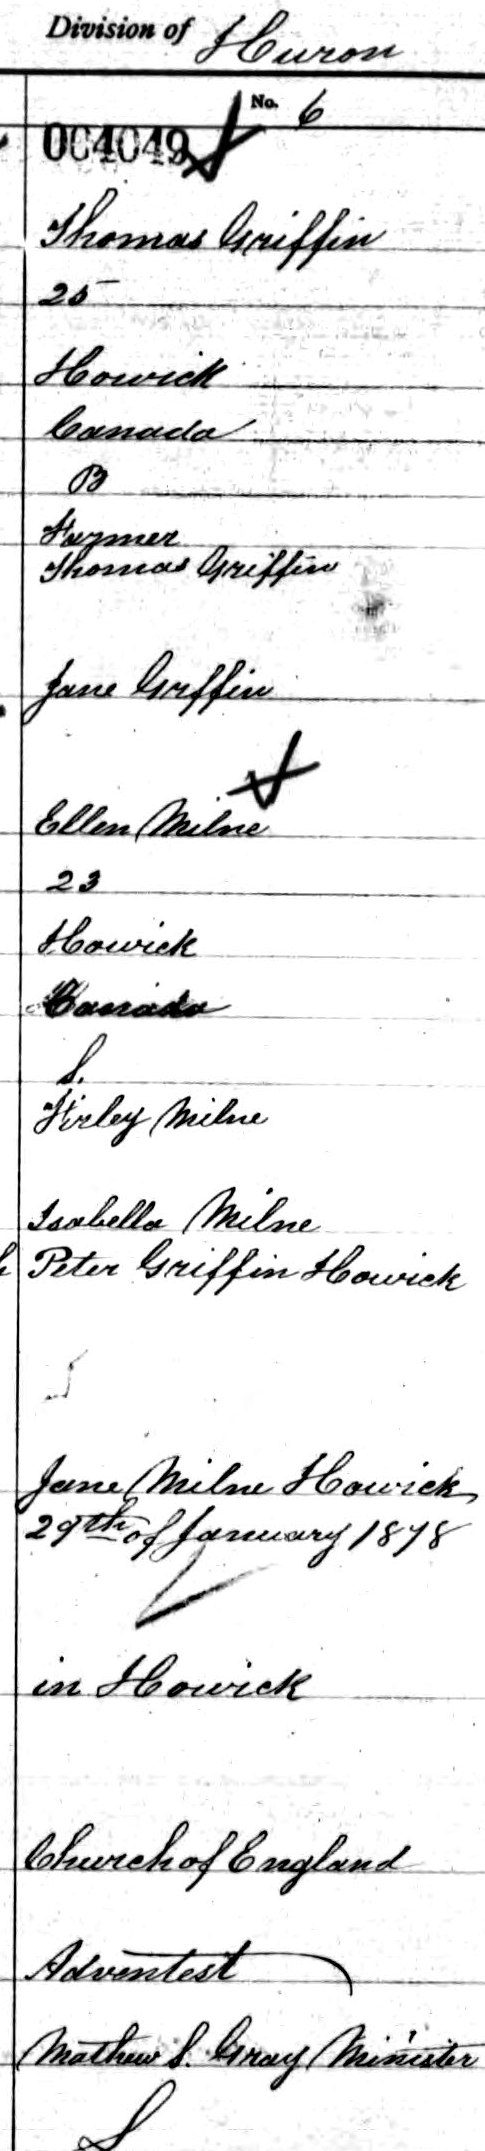 Division of Huron
No. 6
004049
Thomas Griffin
25
Howick
Canada
B
Farmer
Thomas Griffin
Jane Griffin
Ellen Milne
23
Howick
Canada
S.
Milne
Isabella Milne
Peter Griffin Howick
Jane Milne Howick
29th of January 1878
in Howick
Church of England
Adventest
Mathew S. Gray Minister
S